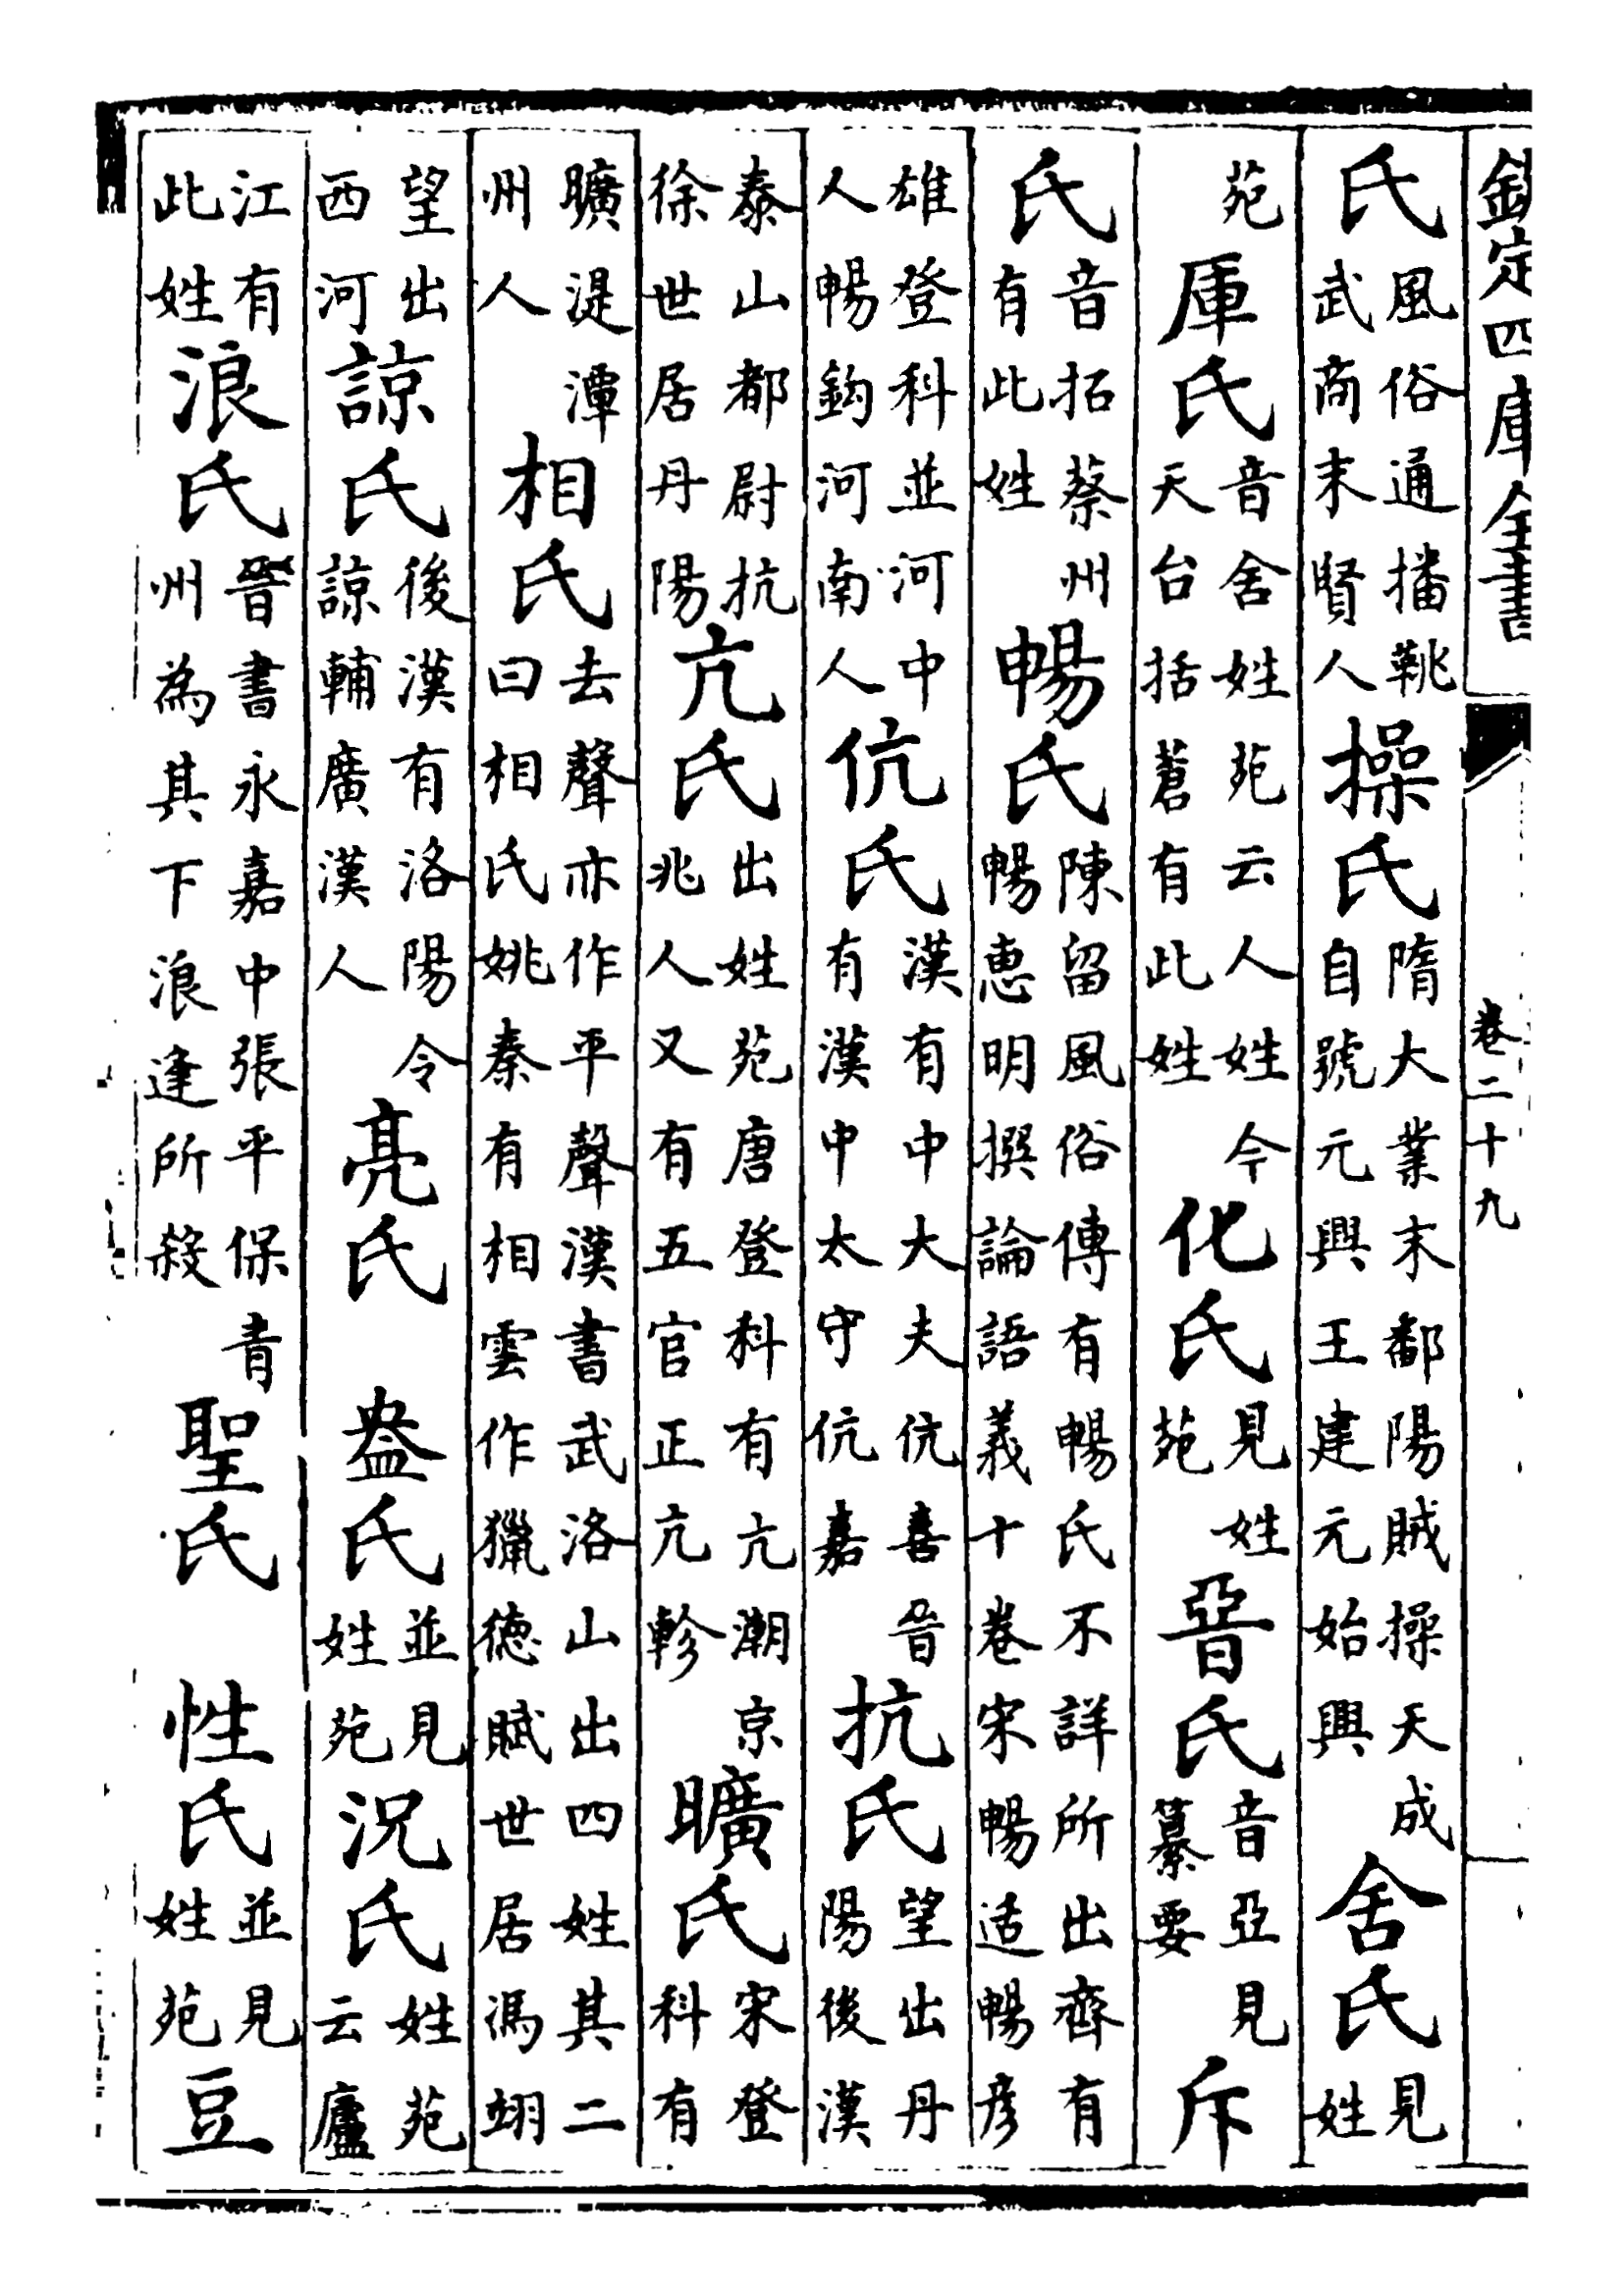 欽定四庫全書
卷二十九
氏風俗通播鞉武商末賢人操氏隋大業末鄱陽賊操天成自號元興王建元始興舍氏見姓
苑厙氏音舍姓苑云人姓今天台括蒼有此姓化氏見姓苑氏音亞見纂要斥
氏音拓蔡州有此姓暢氏陳留風俗傳有暢氏不詳所出齊有暢惠明撰論語義十卷宋暢适暢彦
雄登科並河中人暢鈞河南人伉氏漢有中大夫伉喜晉有漢中太守伉嘉抗氏望出丹陽後漢
泰山都尉抗徐世居丹陽亢氏出姓苑唐登科有亢潮京兆人又有五官正亢軫曠氏宋登科有
曠湜潭州人相氏去聲亦作平聲漢書武洛山出四姓其二曰相氏姚秦有相雲作獵德賦世居馮翊
望出西河諒氏後漢有洛陽令諒輔廣漢人亮氏盎氏並見姓苑況氏姓苑云廬
江有此姓浪氏晉書永嘉中張平保青州為其下浪逢所殺聖氏性氏並見姓苑豆